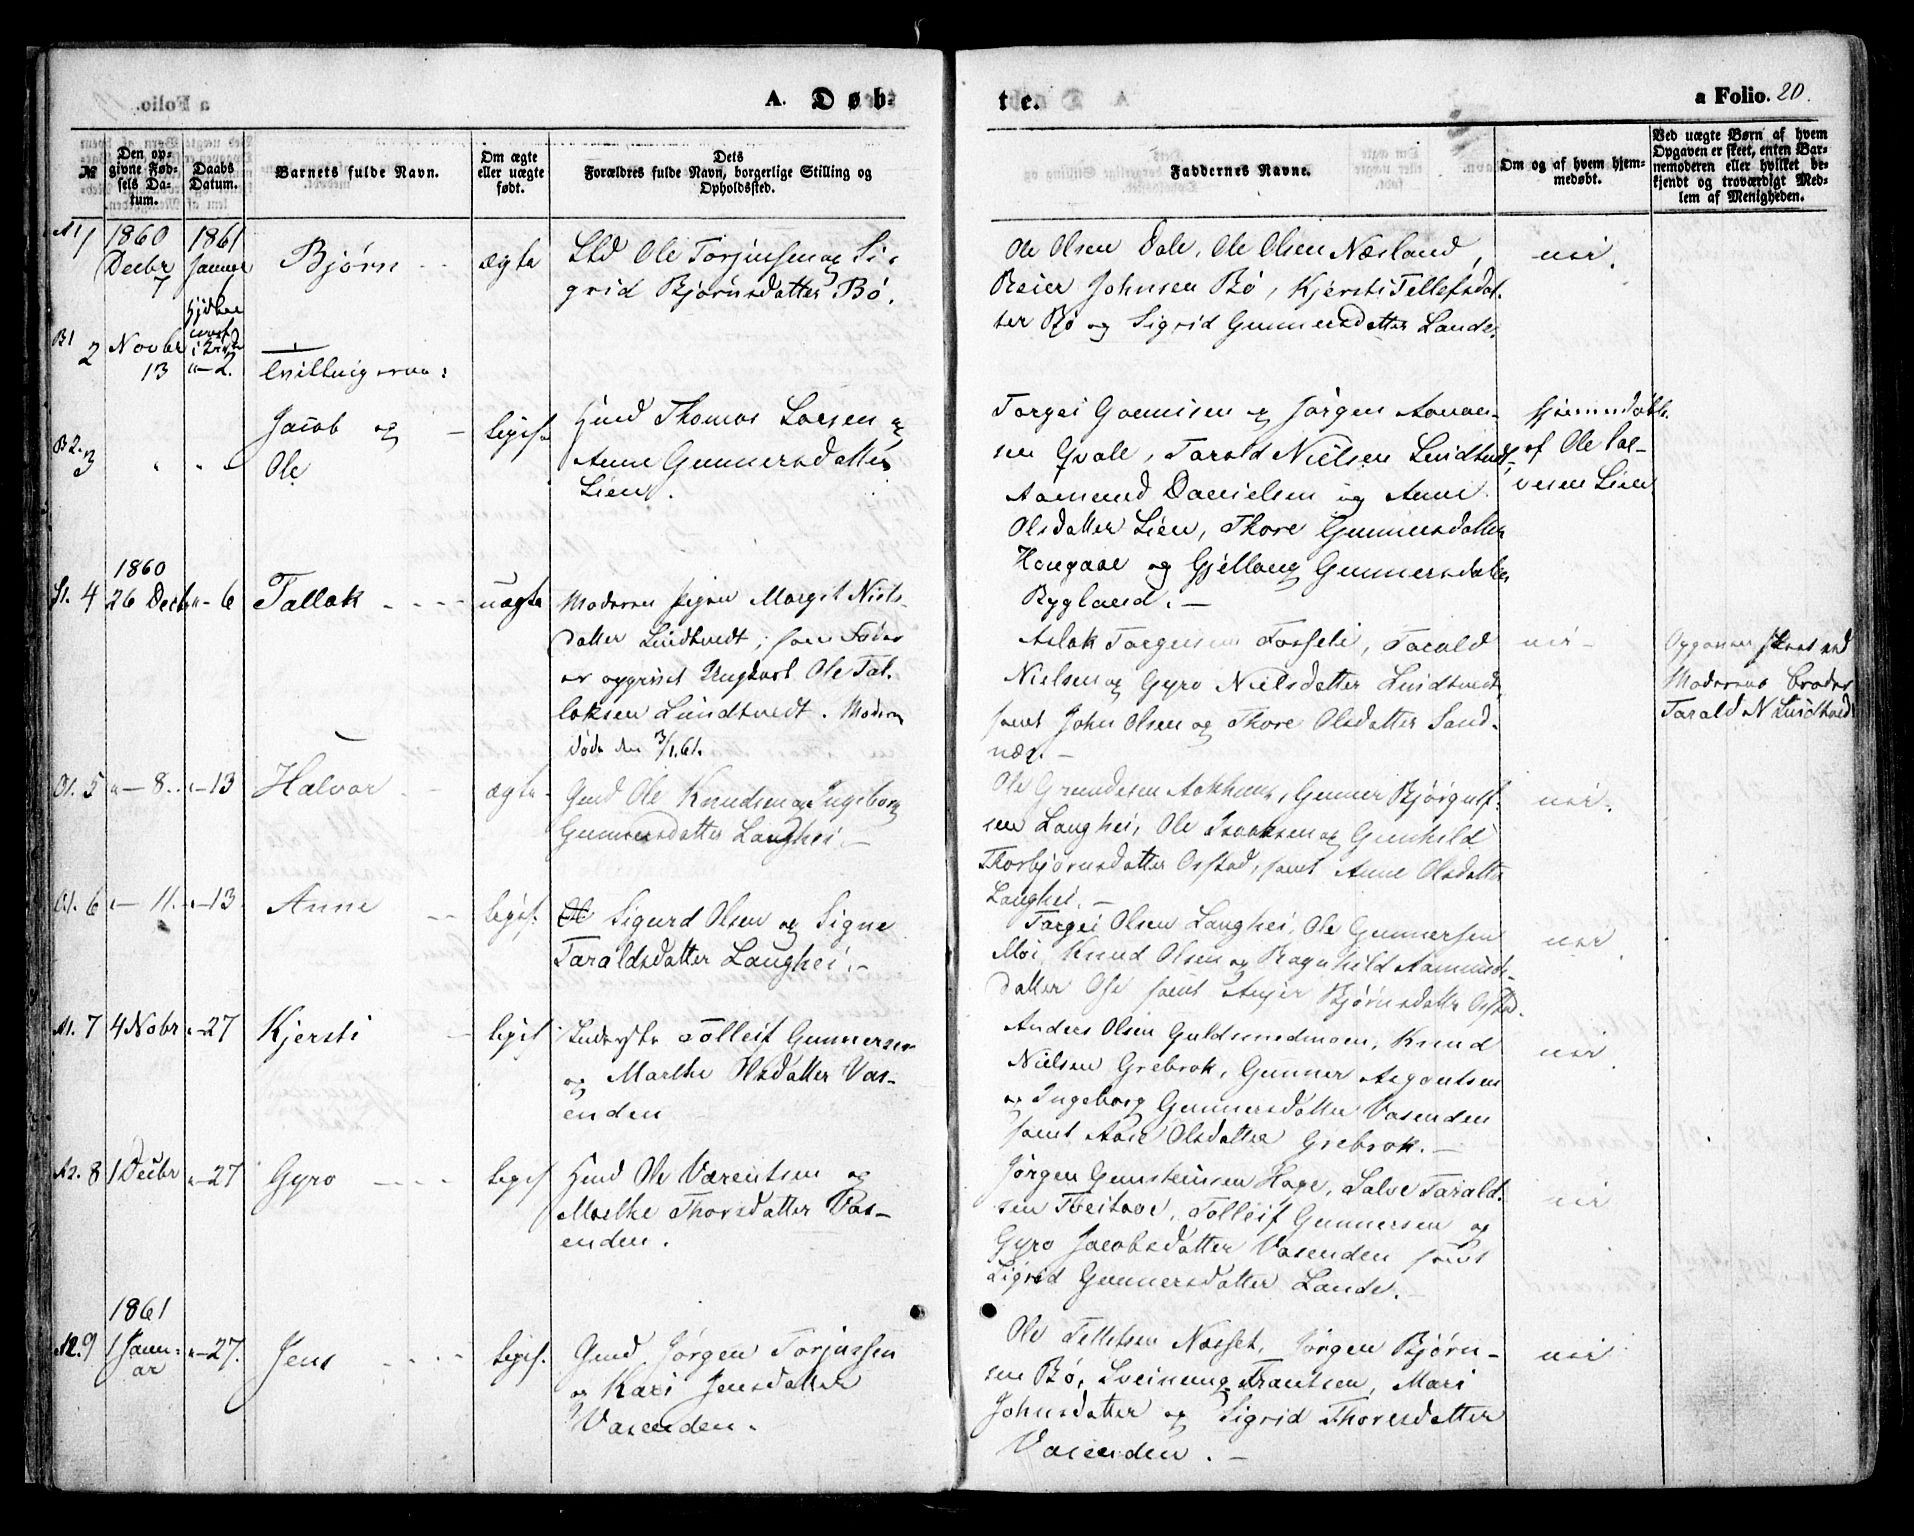 a Folio.
A. Døb-
te.
a Folio. 20.
№
Den op-
givne Fød-
sels Da-
tum.
Daabs
Datum.
Barnets fulde Navn.
Om ægte
eller uægte
født.
Dets
Forældres fulde Navn, borgerlige Stilling og
Opholdssted.
Faddernes Navne.
Om og af hvem hjem-
medøbt.
Ved uægte Børn af hvem
Opgaven er skeet, enten Bar-
nemoderen eller hvilket be-
kjendt og troværdigt Med-
lem af Menigheden.
A1 1
1860
Decbr
7
1861
Januar
Bjørn
ægte
Ole Torjussen og Si-
grid Bjørnsdatter Bø.
Ole Olsen Dale, Ole Olsen Næsland,
Reier Johnsen Bø, Kjersti Tellefsdat-
ter Bø og Sigrid Gunnersdatter Lande.
nei.
B1 2
Novbr
13
-2.
Tvillingerne:
Jacob og
B2. 3
Ole
ligel.
Huusmd Thomas Larsen og
Anne Gunnersdatter
Lien.
Torgei Gunnisen og Jørgen Aanen-
sen Qvale, Tarald Nielsen Lindtvedt,
Aamund Danielsen og Anne
Olsdatter Lien, Thore Gunnersdatter
Haugaae og Gjellaug Gunnersdatter
Bygland. —
hjemmedøbte
af Ole Sal-
vesen Lien
4
1860
26 Decbr
- 6
Tallak
uægte
Moderen Pigen Margit Niels-
datter Lindtvedt; som Fader
er opgivet Ungkarl Ole Tal-
laksen Lindtvedt. Moderen
døde den 3/1.61.
Aslak Torgersen Fosseli, Tarald
Nielsen og Gyro Nielsdatter Lindtvedt
samt John Olsen og Thore Olsdatter Sand-
næs. —
nei —
Opgaven skeet ved
Moderens Broder
Tarald N Lindtvedt
5
— 8.
-13
Halvor
ægte
Gmd Ole Knudsen og Ingeborg
Gunnersdatter Langhei. —
Ole Grundesen Aakhuus, Gunner Bjørgulf-
sen Langhei, Ole Isaaksen og Gunhild
Thorbjørnsdatter Osstad, samt Anne Olsdatter
Langhei. —
nei.
6
— 11.
-13
Anne
ligel.
Sigurd Olsen og Signe
Taraldsdatter Langhei. —
Torgei Olsen Langhei, Ole Gunnersen
Moi, Knud Olsen og Ragnhild Aamunds-
datter Ose samt Asger Bjørnsdatter Osstad.
nei
A1. 7
4 Nobr
-27
Kjersti
ligel
Inderste Tolleif Gunnersen
og Marthe Olsdatter Vas-
enden
Anders Olsen Guldsmedmoen, Knud
Nielsen Grebrok, Gunner Asgautsen
og Ingeborg Gunnersdatter Vasenden
samt Aase Olsdatter Grebrok. —
nei
A2. 8
1 Decbr
-27
Gyro
ligel
Huusmd Ole Værentsen og
Marthe Thorsdatter Vas-
enden.
Jørgen Gunsteinsen Hage, Salve Tarald-
sen Tveitaae, Tolleif Gunnersen og
Gyro Jacobsdatter Vasenden samt
Sigrid Gunnersdatter Lande.
nei
9
1861
1 Janu-
ar
-27.
Jens
ligel.
Gmd Jørgen Torjussen
og Kari Jensdatter
Vasenden.
Ole Tellefsen Næsset, Jørgen Bjørn-
sen Bø, Sveinung Frantsen, Mari
Johnsdatter og Sigrid Thoresdatter
Vasenden. —
nei